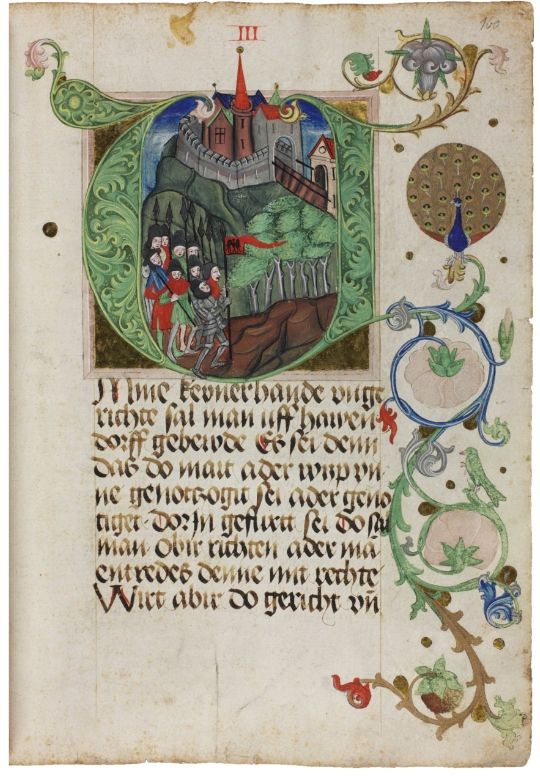 III
100
Mme keynerhande vnge
richte sal man uff hawen
dorff gebewde Es sei denn
das do mait ader wyp yn
ne genotczogit sei ader geno
tiget dorjn gefurt sei do sal
man obir richten ader mā
entredes denne mit rechte
Wirt abir do gericht vn̄